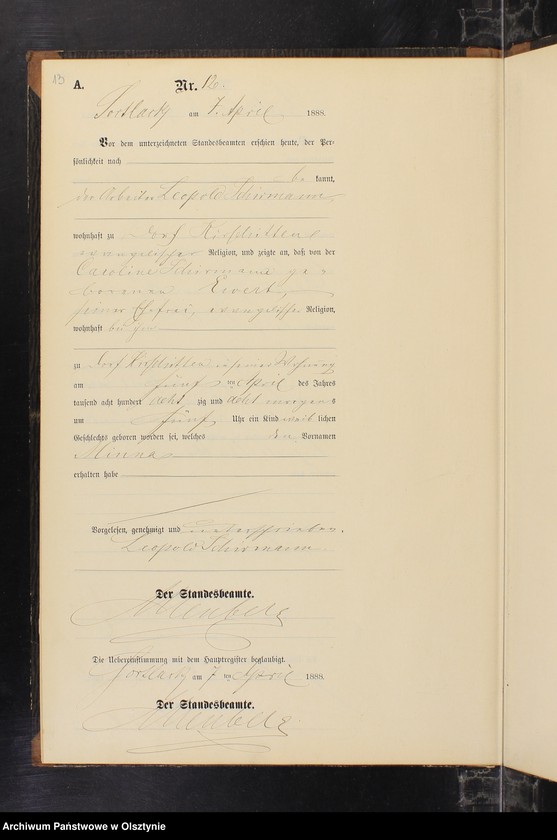 13
A. Nr. 12.
am 7. April 1888.
Vor dem unterzeichneten Standesbeamten erschien heute, der Per-
sönlichkeit nach
be kannt,
der Arbeiter Leopold Schirmann
wohnhaft zu Dorf
evangelischer Religion, und zeigte an, daß von der
Caroline Schirmann ge-
borenen Ewert,
seiner Ehefrau, evangelischer Religion,
wohnhaft bei ihm
zu Dorf in seiner Wohnung
am fünften April des Jahres
tausend acht hundert acht zig und acht morgens
um fünf Uhr ein Kind weib lichen
Geschlechts geboren worden sei, welches den Vornamen
Minna
erhalten habe
Vorgelesen, genehmigt und unterschrieben.
Leopold Schirmann
Der Standesbeamte.
Die Uebereinstimmung mit dem Hauptregister beglaubigt.
am 7 ten April 1888.
Der Standesbeamte.
Archiwum Państwowe w Olsztynie